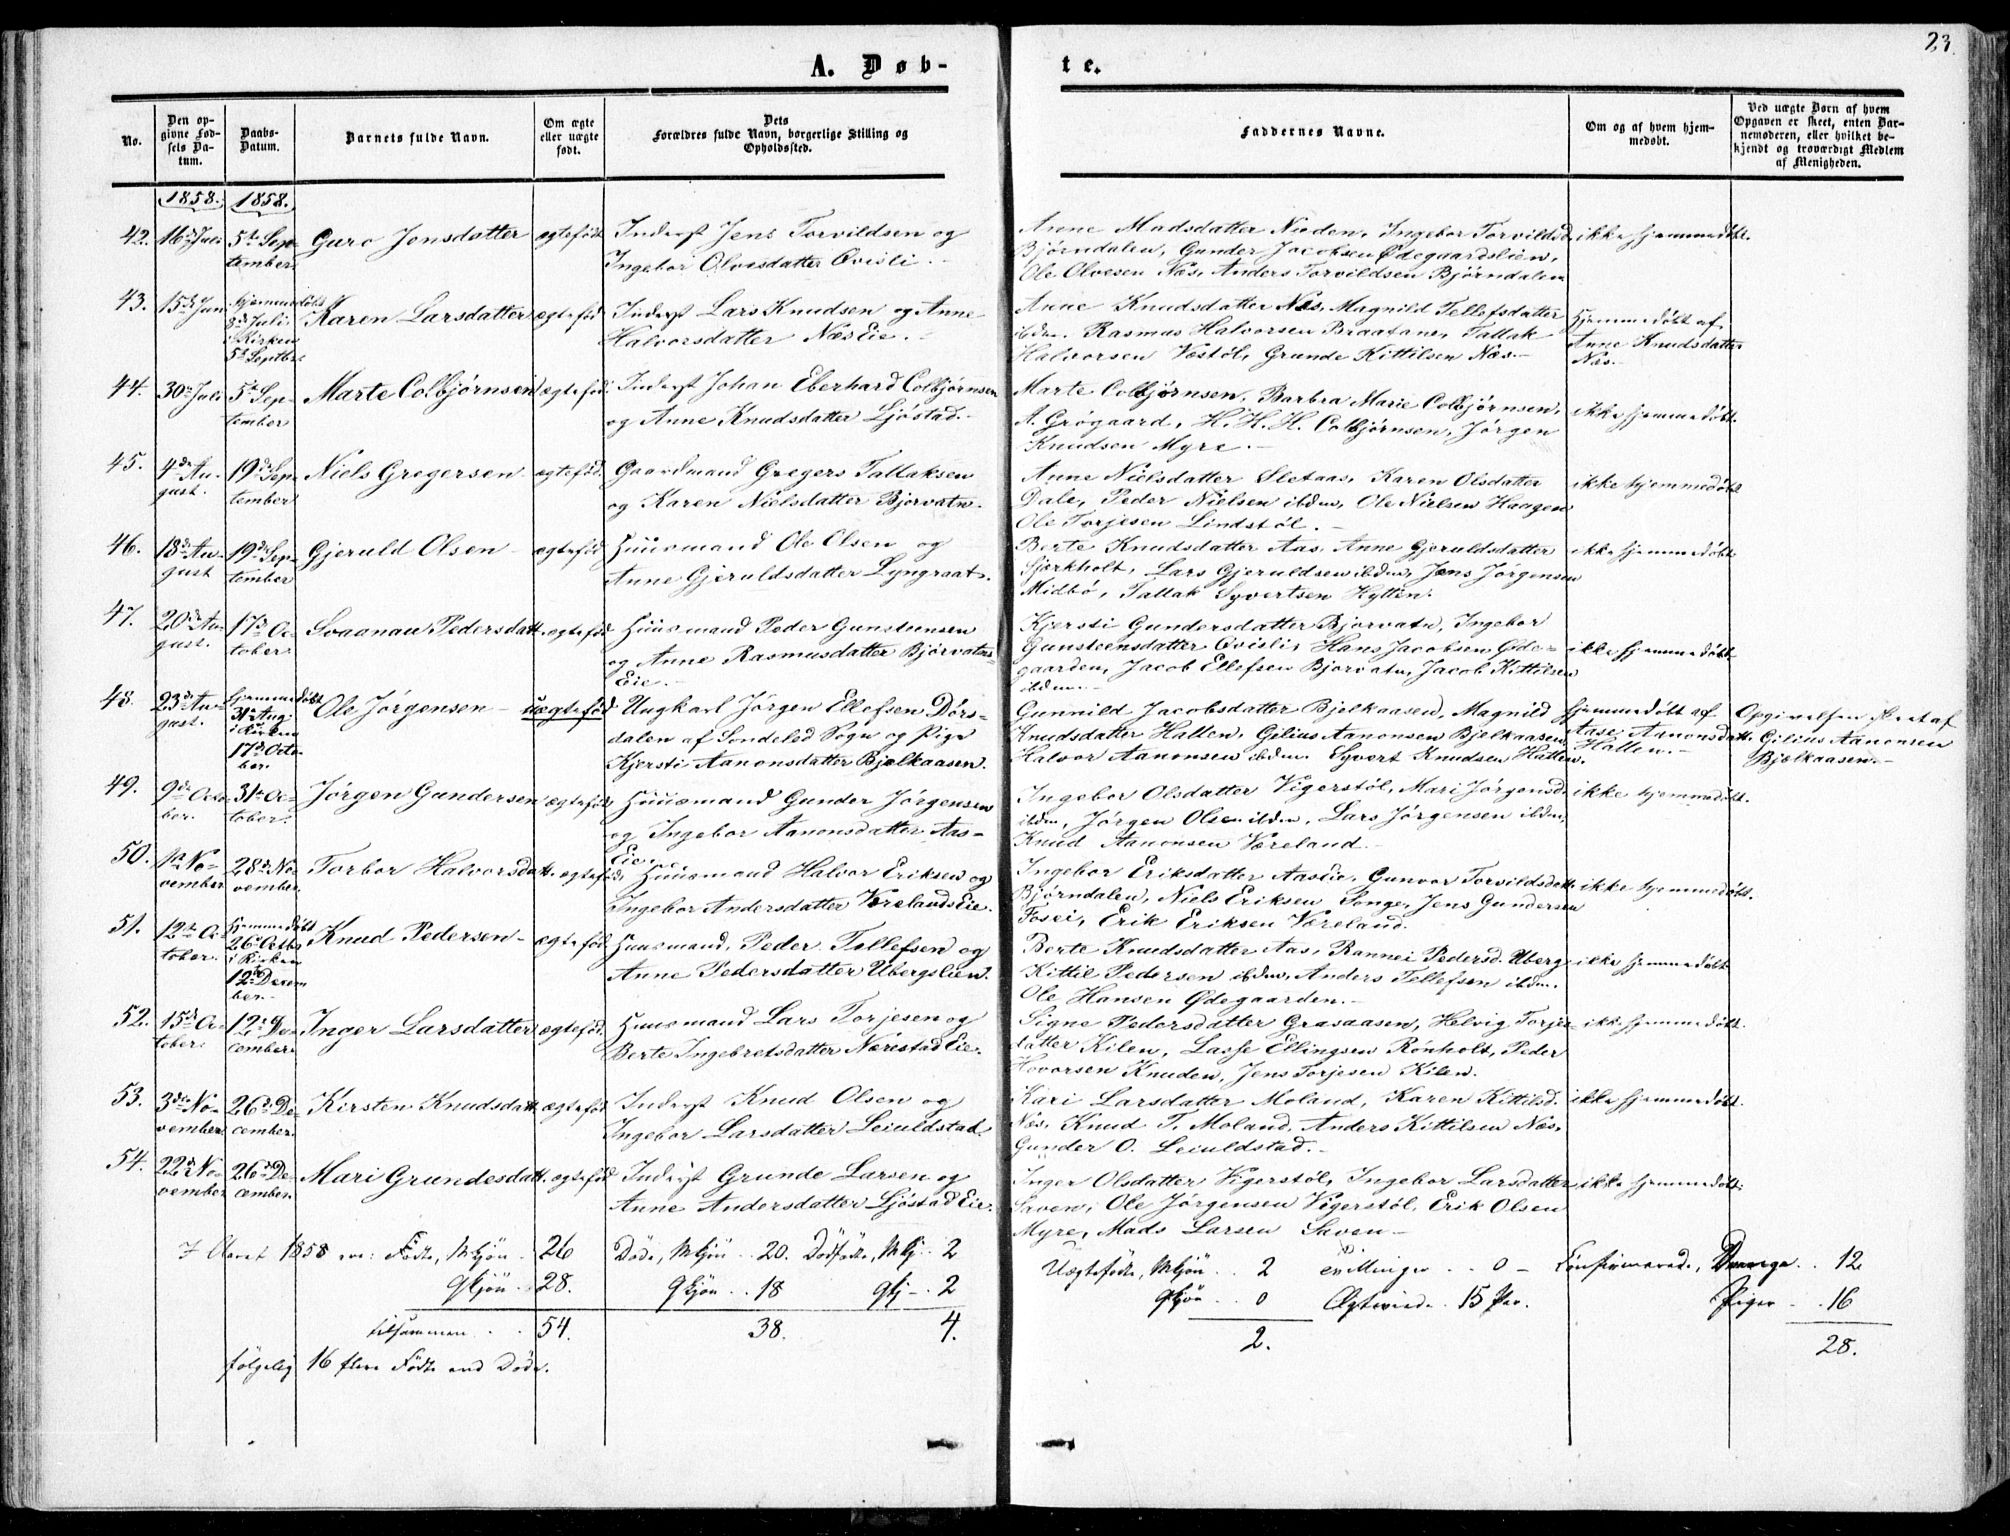 23.
A. Døb-
te.
No.
Den op-
givne Fød-
sels Da-
tum.
Daabs-
Datum.
Barnets fulde Navn.
Om ægte
eller uægte
født.
Dets
Forældres fulde Navn, borgerlige Stilling og
Opholdssted.
Faddernes Navne.
Om og af hvem hjem-
medøbt.
Ved uægte Børn af hvem
Opgaven er skeet, enten Bar-
nemoderen, eller hvilket be-
kjendt og troværdigt Medlem
af Menigheden.
1858.
1858.
42.
16de Juli
5te Sep-
tember.
Guro Jensdatter
ægtefødt
Inderst Jens Torvildsen og
Ingebor Olvesdatter Øvisli.-
Anne Madsdatter Neden, Ingebor Torvildsd.
Bjørndalen, Gunder Jacobsen Ødegaardslien,
Ole Olvesen Næs, Anders Torvildsen Bjørndalen
ikke hjemmedøbt.
43.
15de Jun
hjemmedøbt
8de Juli
i Kirken
5te Septbr.
Karen Larsdatter
ægtefød
Inderst Lars Knudsen og Anne
Halvorsdatter NæsEie.-
Anne Knudsdatter Næs, Magnild Tellefsdatter
ibdm. Rasmus Halvorsen Braatane, Tallak
Halvorsen Vestøl, Grunde Kittilsen Næs.-
Hjemmedøbt af
Anne Knudsdatter
Næs.
44.
30te Juli
5te Sep-
tember
Marte Colbjørnsen
ægtefød.
Inderst Johan Eberhard Colbjørnsen
og Anne Knudsdatter Ljøstad.-
Marte Colbjørnsen, Barbra Marie Colbjørnsen,
A. Grøgaard, H. H. H. Colbjørnsen, Jørgen
Knudsen Myre.-
ikke hjemmedøbt.
45.
4de Au-
gust.
19de Sep-
tember
Niels Gregersen
ægtefød.
Gaardmand Gregers Tallaksen
og Karen Nielsdatter Bjorvatn.
Anne Nielsdatter Sletaas, Karen Olsdatter
Dale, Peder Nielsen ibdm, Ole Nielsen Haagen
Ole Torjesen Lindstøl.-
ikke hjemmedøbt
46.
18de Au-
gust
19de Sep-
tember
Gjeruld Olsen
ægtefød
Huusmand Ole Olsen og
Anne Gjeruldsdatter Lyngraat.
Berte Knudsdatter Aas, Anne Gjeruldsdatter
Bjerkholt, Lars Gjeruldsen ibdm, Jens Jørgensen
Midbø, Tallak Syvertsen Hylten.
ikke hjemmedøbt
47.
20de Au-
gust.
17de Oc-
tober.
Svaanau Pedersdatt.
ægtefød
Huusmand Peder Gunsteensen
og Anne Rasmusdatter Bjorvatns-
Eie.-
Kjersti Gundersdatter Bjorvatn, Ingebor
Gunsteensdatter Øvisli, Hans Jacobsen Øde-
gaarden, Jacob Ellefsen Bjorvatn, Jacob Kittilsen
ibdm.-
ikke hjemmedøbt
48.
23de Au-
gust.
hjemmedøbt
31te Aug
i Kirken
17de Octo-
ber.
Ole Jørgensen
uægtefød
Ungkarl Jørgen Ellefsen Dørs-
dalen af Søndeled Sogn og Pige
Kjersti Aanonsdatter Bjelkaasen.
Gunnild Jacobsdatter Bjelkaasen, Magnild
Knudsdatter Hatten, Gilius Aanonsen Bjelkaasen,
Halvor Aanonsen ibdm. Syvert Knudsen Hatten.
Hjemmedøbt af
Aase Aanonsdatt.
Hatten.-
Opgivelsen skeet af
Gilius Aanonsen
Bjelkaasen.-
49.
9de Octo-
ber.
31te Oc-
tober.
Jørgen Gundersen
ægtefød
Huusmand Gunder Jørgensen
og Ingebor Aanonsdatter Aas-
Eie.
Ingebor Olsdatter Vigerstøl, Mari Jørgensd.
ibdm, Jørgen Olsen ibdm, Lars Jørgensen ibdm,
Knud Aanonsen Væreland.
ikke hjemmedøbt.
50.
1ste No-
vember
28de No-
vember.
Torbor Halvorsdatt.
ægtefød.
Huusmand Halvor Eriksen og
Ingebor Andersdatter VærelandsEie.
Ingebor Eriksdatter Aaslie, Gunvor Torvildsdatt.
Bjørndalen, Niels Eriksen Songe, Jens Gundersen
Fosei, Erik Eriksen Væreland.
ikke hjemmedøbt.
51.
12te Oc-
tober.
hjemmedøbt
26de Octbr
i Kirken
12te Decem-
ber.-
Knud Pedersen
ægtefød
Huusmand, Peder Tellefsen og
Anne Pedersdatter Ubergslien.
Berte Knudsdatter Aas, Rannei Pedersd. Uberg
Kittil Pedersen ibdm, Anders Tellefsen ibdm.
Ole Hansen Ødegaarden.-
ikke hjemmedøbt
52.
15de Oc-
tober.
12te De-
cember.
Inger Larsdatter
ægtefød.
Huusmand Lars Torjesen og
Berte Ingebretsdatter NærestadEie.
Signe Pedersdatter Grasaasen, Helvig Torjes-
datter Kilen, Lasse Ellingsen Rønholt, Peder
Hovorsen Knuden, Jens Torjesen Kilen.
ikke hjemmedøbt.
53.
3die No-
vember.
26de De-
cember.
Kirsten Knudsdatt.
ægtefød
Inderst Knud Olsen og
Ingebor Larsdatter Leiuldstad.
Kari Larsdatter Moland, Karen Kittilsd.
Næs, Knud T. Moland, Anders Kittilsen Næs,
Gunder O. Leiuldstad.-
ikke hjemmedøbt.
54.
22de No-
vember
26de De-
cember
Mari Grundesdatt.
ægtefød
Inderst Grunde Larsen og
Anne Andersdatter LjøstadEie.
Inger Olsdatter Vigerstøl, Ingebor Larsdatter
Saven, Ole Jørgensen Vigerstøl, Erik Olsen
Myre, Mads Larsen Saven-
ikke hjemmedøbt.
I Aaret 1858 ere: Fødte, Mkjøn 26 Døde, Mkjøn .. 20. Dødfødte, Mkj.. 2
Uægtefødte, Mkjön .. 2 Tvillinger .. 0 - Confirmerede, Drenge .. 12
Qkjön .. 28. Qkjön .. 18 Qkj-. 2
Qkjön .. 0 Ægteviede . 15 Par. Piger - .. 16
tilsammen . . 54. 38. 4.
2. 28.
følgelig 16 flere Fødte end Døde.